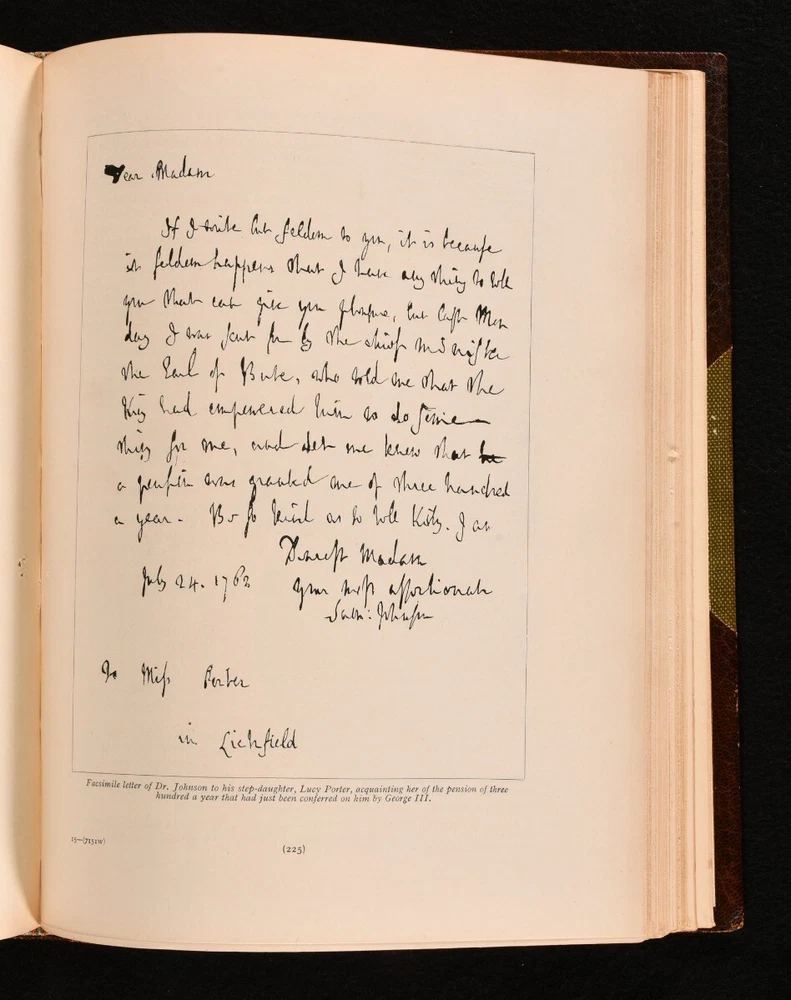 Dear Madam
If I write but seldom to you, it is because
it seldom happens that I have any thing to tell
you that can give you pleasure, but last Mon
day I was sent for by the chief minister
the Earl of Bute, who told me that the
King had empowered him to do some
thing for me, and let me know that
a pension was granted me of three hundred
a year. Be so kind as to tell Kitty. I am
Dearest Madam
July 24. 1762 your most affectionate
Sam: Johnson
To Miss Porter
in Lichfield
Facsimile letter of Dr. Johnson to his step-daughter, Lucy Porter, acquainting her of the pension of three
hundred a year that had just been conferred on him by George III.
15—(7151W)
(225)